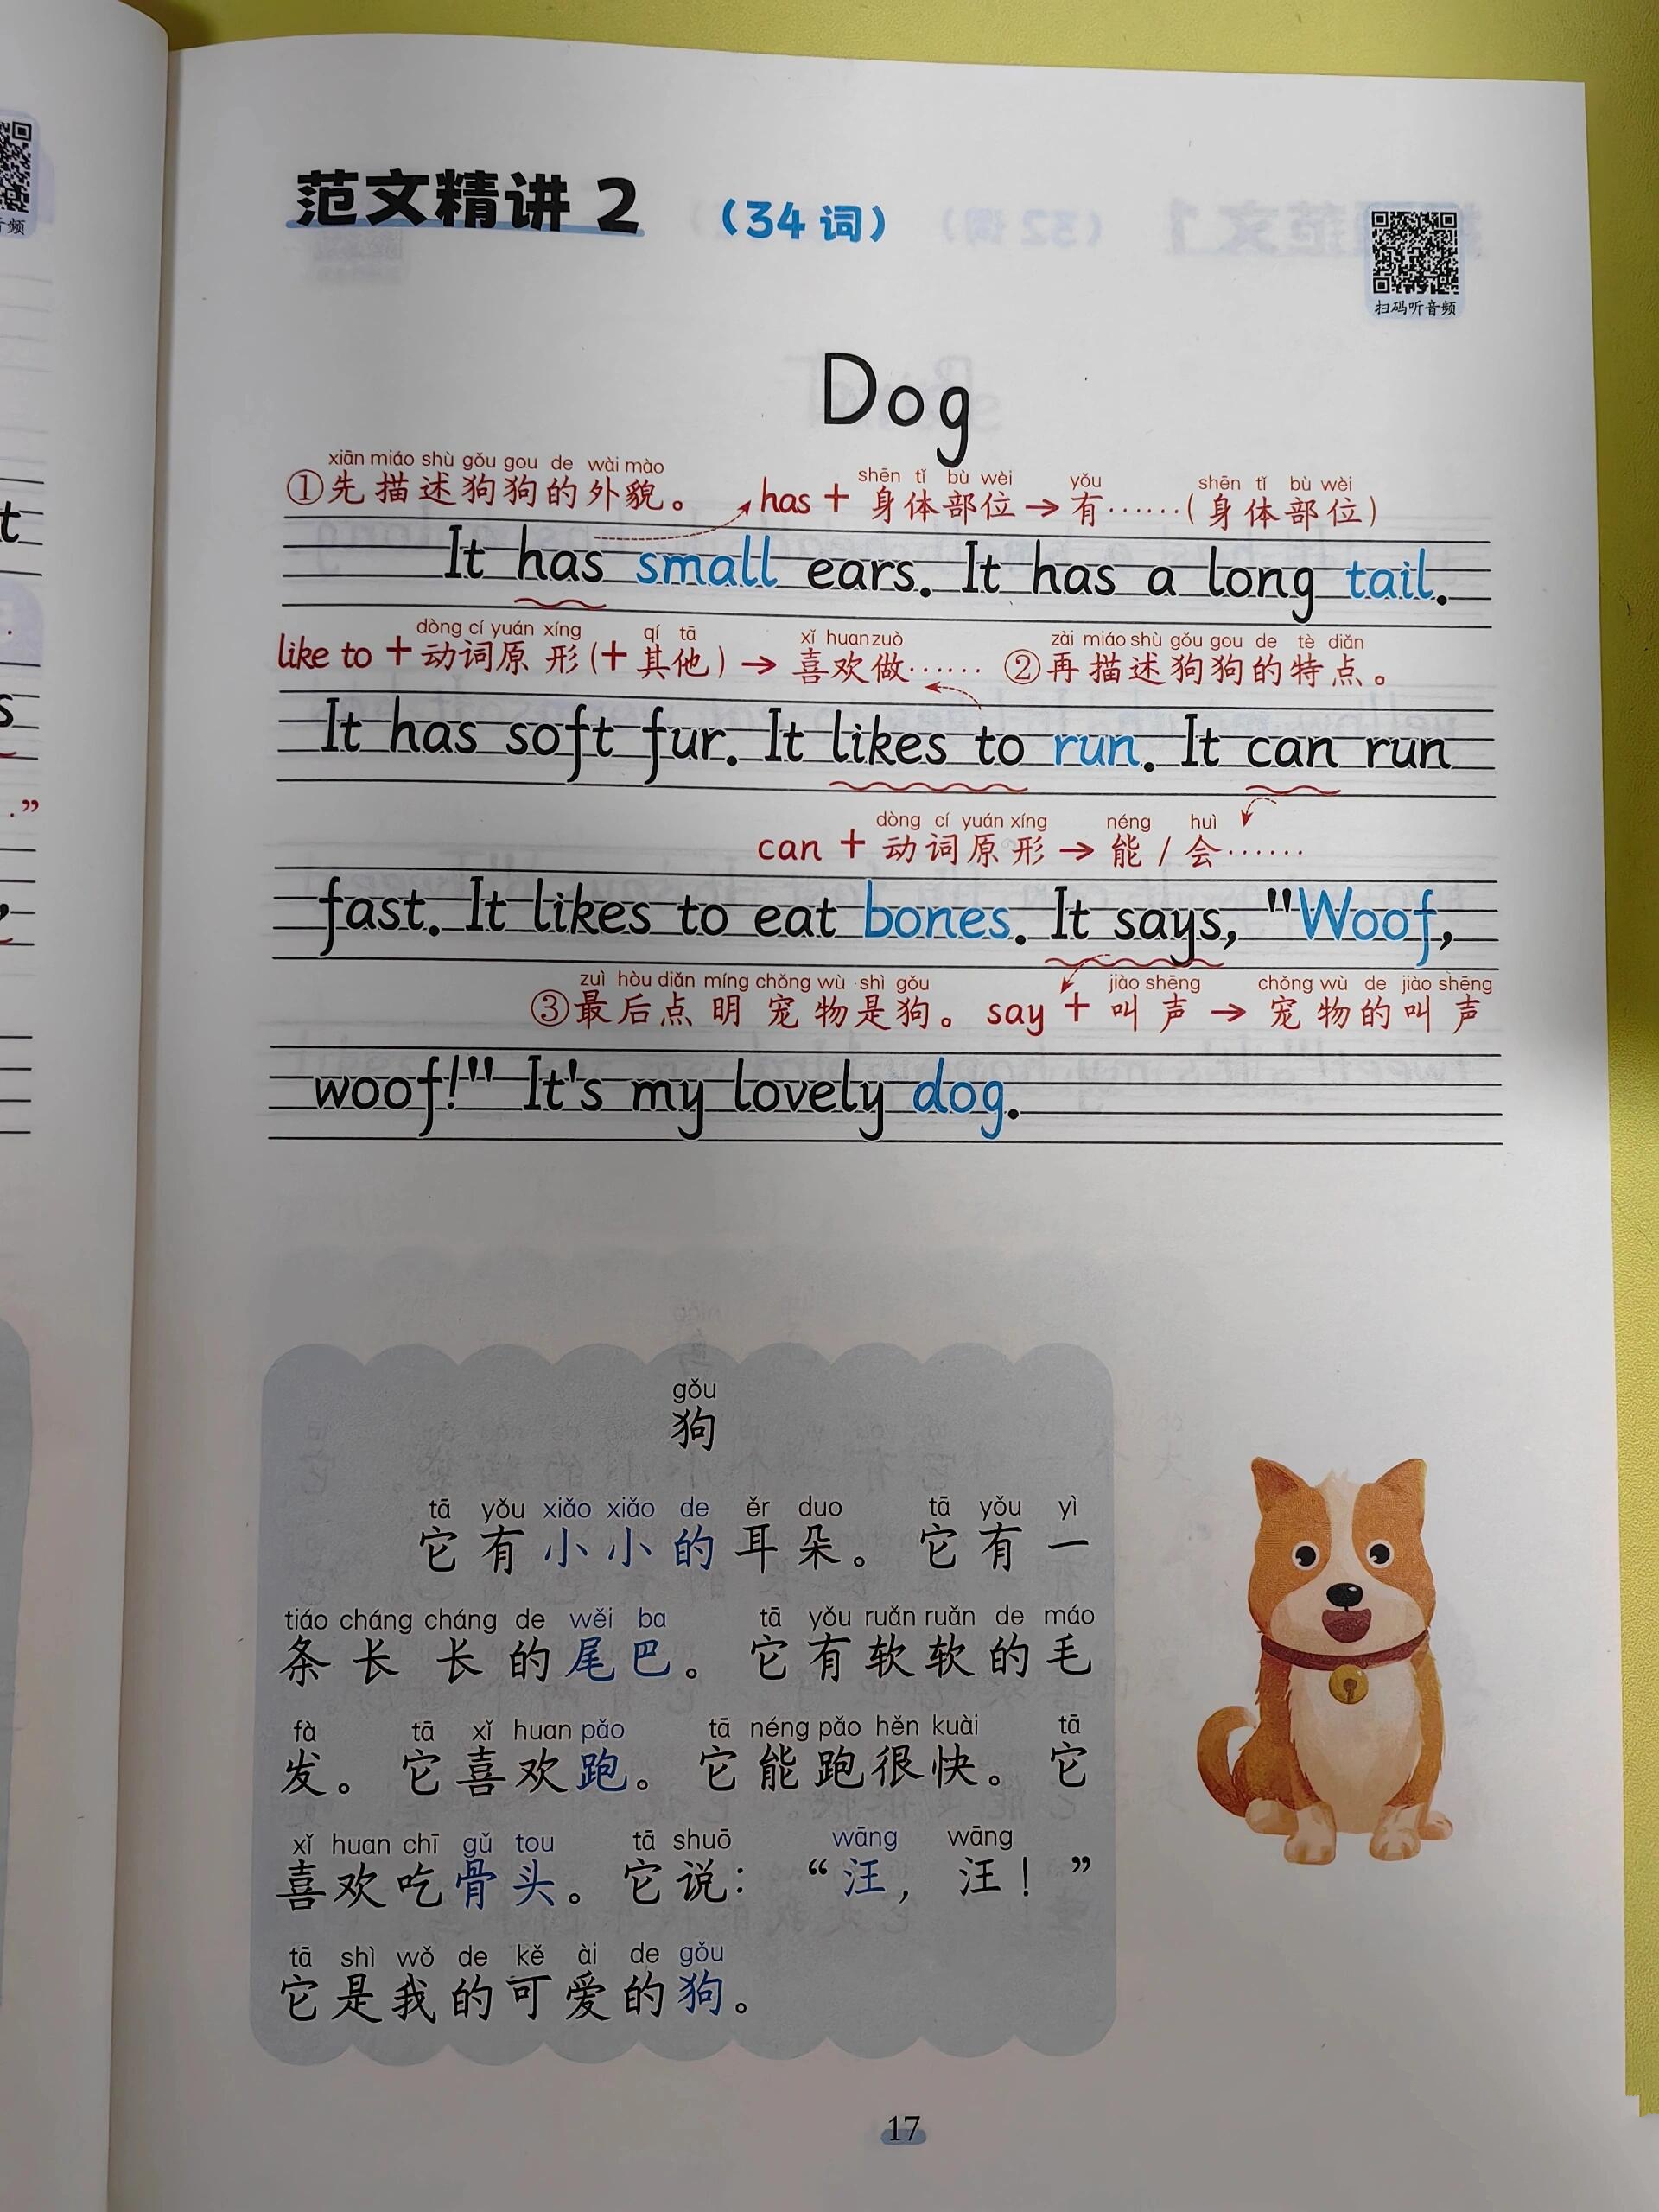 音频
t
s
.”
,
范文精讲 2 （34 词）
扫码听音频
Dog
xiān miáo shù gǒu gou de wài mào
①先描述狗狗的外貌。
shēn tǐ bù wèi yǒu shēn tǐ bù wèi
has + 身体部位 → 有······(身体部位)
It has small ears. It has a long tail.
dòng cí yuán xíng qí tā xǐ huan zuò
like to + 动词原形(+ 其他) → 喜欢做······
zài miáo shù gǒu gou de tè diǎn
②再描述狗狗的特点。
It has soft fur. It likes to run. It can run
dòng cí yuán xíng néng huì
can + 动词原形 → 能 / 会······
fast. It likes to eat bones. It says, "Woof,
zuì hòu diǎn míng chǒng wù shì gǒu
③最后点明宠物是狗。
jiào shēng chǒng wù de jiào shēng
say + 叫声 → 宠物的叫声
woof!" It's my lovely dog.
gǒu
狗
tā yǒu xiǎo xiǎo de ěr duo tā yǒu yì
它有小小的耳朵。它有一
tiáo cháng cháng de wěi ba tā yǒu ruǎn ruǎn de máo
条长长的尾巴。它有软软的毛
fà tā xǐ huan pǎo tā néng pǎo hěn kuài tā
发。它喜欢跑。它能跑很快。它
xǐ huan chī gǔ tou tā shuō wāng wāng
喜欢吃骨头。它说：“汪，汪！”
tā shì wǒ de kě ài de gǒu
它是我的可爱的狗。
17